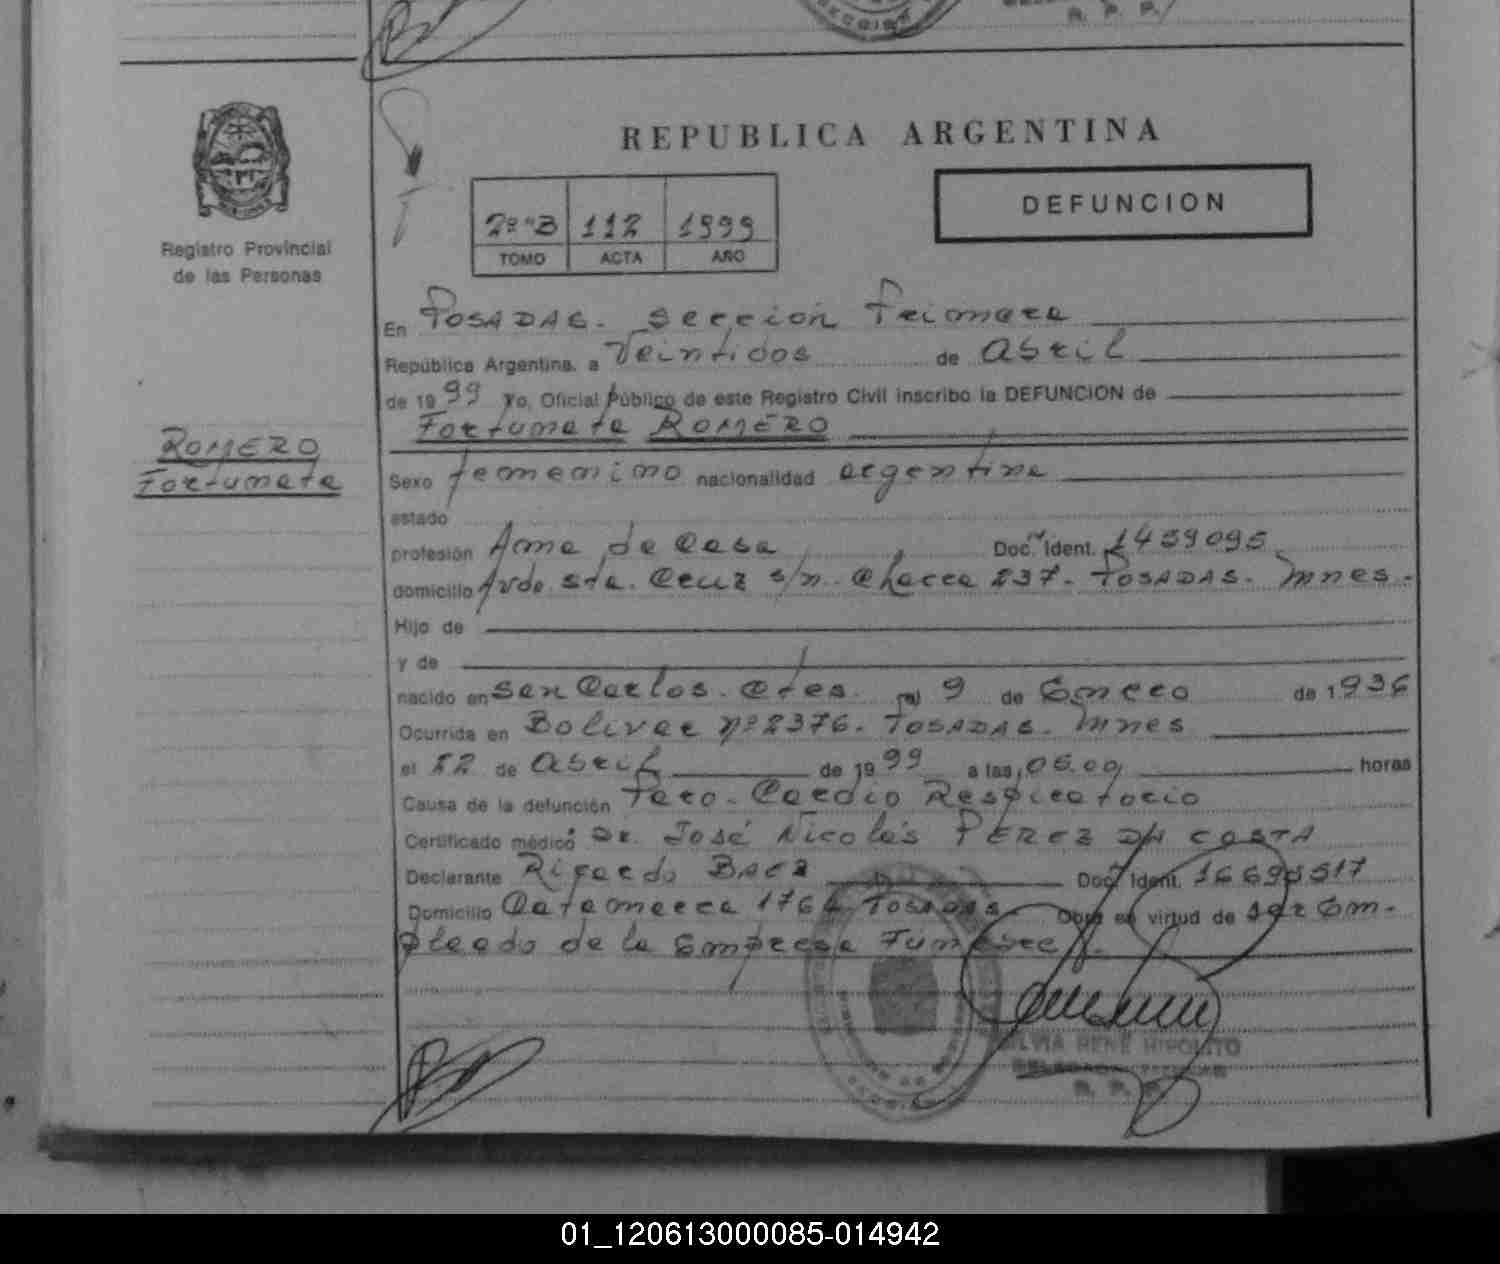 REPUBLICA ARGENTINA
DEFUNCION
2º "B 112 1999
TOMO ACTA AÑO
Registro Provincial
de las Personas
En POSADAS. Sección Primera
República Argentina, a Veintidos de Abril
de 1999 Yo, Oficial Público de este Registro Civil inscribo la DEFUNCION de
Fortunata ROMERO
ROMERO
Fortunata
Sexo femenino nacionalidad argentina
estado
profesión Ama de Casa Doc. Ident. 1459095
domicilio Avda. Sta. Cruz s/n. Chacra 237. POSADAS. Mnes.
Hijo de
y de
nacido en San Carlos. Ctes. el 9 de Enero de 1936
Ocurrida en Bolivar Nº 2376. POSADAS. Mnes
el 22 de Abril de 1999 a las 06.00 horas
Causa de la defunción Paro. Cardio Respiratorio
Certificado médico: Dr. José Nicolás PEREZ DA COSTA
Declarante Ricardo BAEZ Doc. Ident.
Domicilio Catamarca 1764 POSADAS. Obra en virtud de ser Em-
pleado de la Empresa Funebre
SILVIA RENE HIPOLITO
R. P. P.
01_120613000085-014942